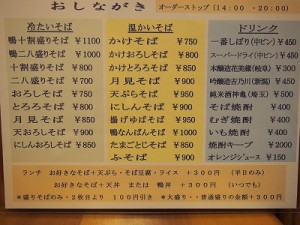 おしながき オーダーストップ(14:00 ・20:00)
冷たいそば
鴨十割盛りそば ¥1100
鴨二八盛りそば ¥1000
十割盛りそば ¥800
二八盛りそば ¥700
おろしそば ¥750
とろろそば ¥850
月見そば ¥850
天おろしそば ¥900
にしんおろしそば ¥850
温かいそば
かけそば ¥750
かけおろしそば ¥800
かけとろろそば ¥850
月見そば ¥950
天ぷらそば ¥950
にしんそば ¥900
揚げゆばそば ¥950
鴨なんばんそば ¥1000
たまごとじそば ¥850
ふそば ¥900
ドリンク
一番しぼり(中ビン) ¥450
スーパードライ(中ビン) ¥450
本醸造花美蔵(岐阜) ¥300
吟醸造吉乃川(新潟) ¥450
純米酒神亀(埼玉) ¥500
そば焼酎 ¥400
むぎ焼酎 ¥400
いも焼酎 ¥400
焼酎キープ ¥2000
オレンジジュース ¥150
ランチ お好きなそば+天ぷら・そば豆腐・ライス +300円 (平日のみ)
お好きなそば+天丼 または 鴨丼 +300円 (いつでも)
*盛りそばのみ・2枚目より 100円引き *大盛り・・普通盛りの金額+300円